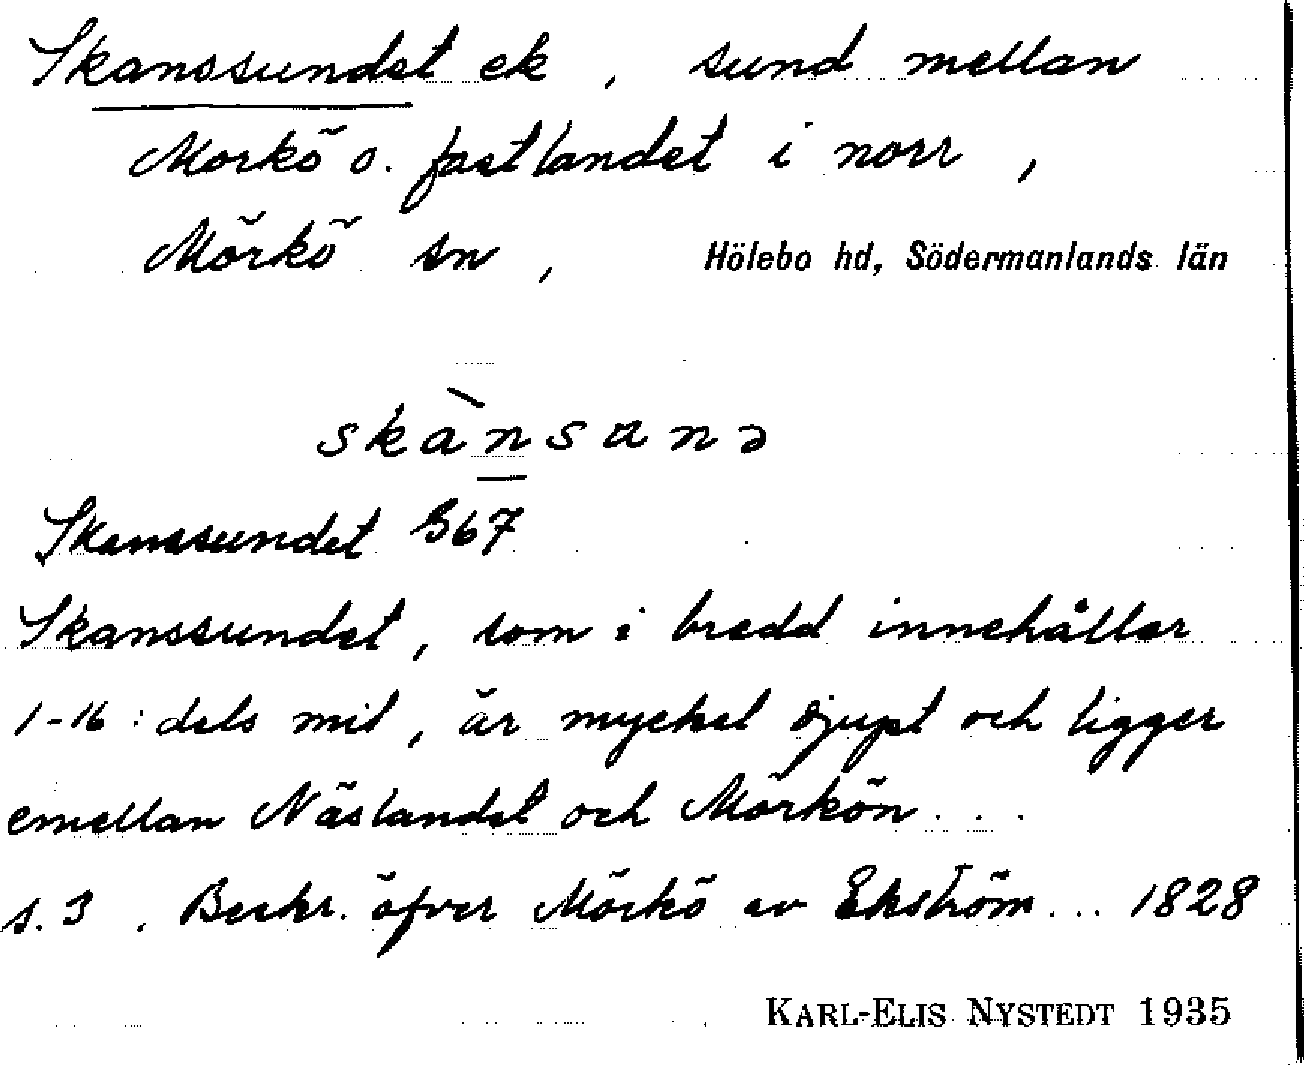 Skanssundet ek, sund mellan
Morkö o. fastlandet i norr,
Mörkö sn, Hölebo hd, Södermanlands län
skànsunə
Skanssundet 567
Skanssundet, som i bredd innehåller
1-16:dels mil, är myckel djupt och ligger
emellan Näslandet och Mörkön...
s. 3. Beskr. öfver Mörkö av Ekström... 1828
KARL-ELIS NYSTEDT 1935